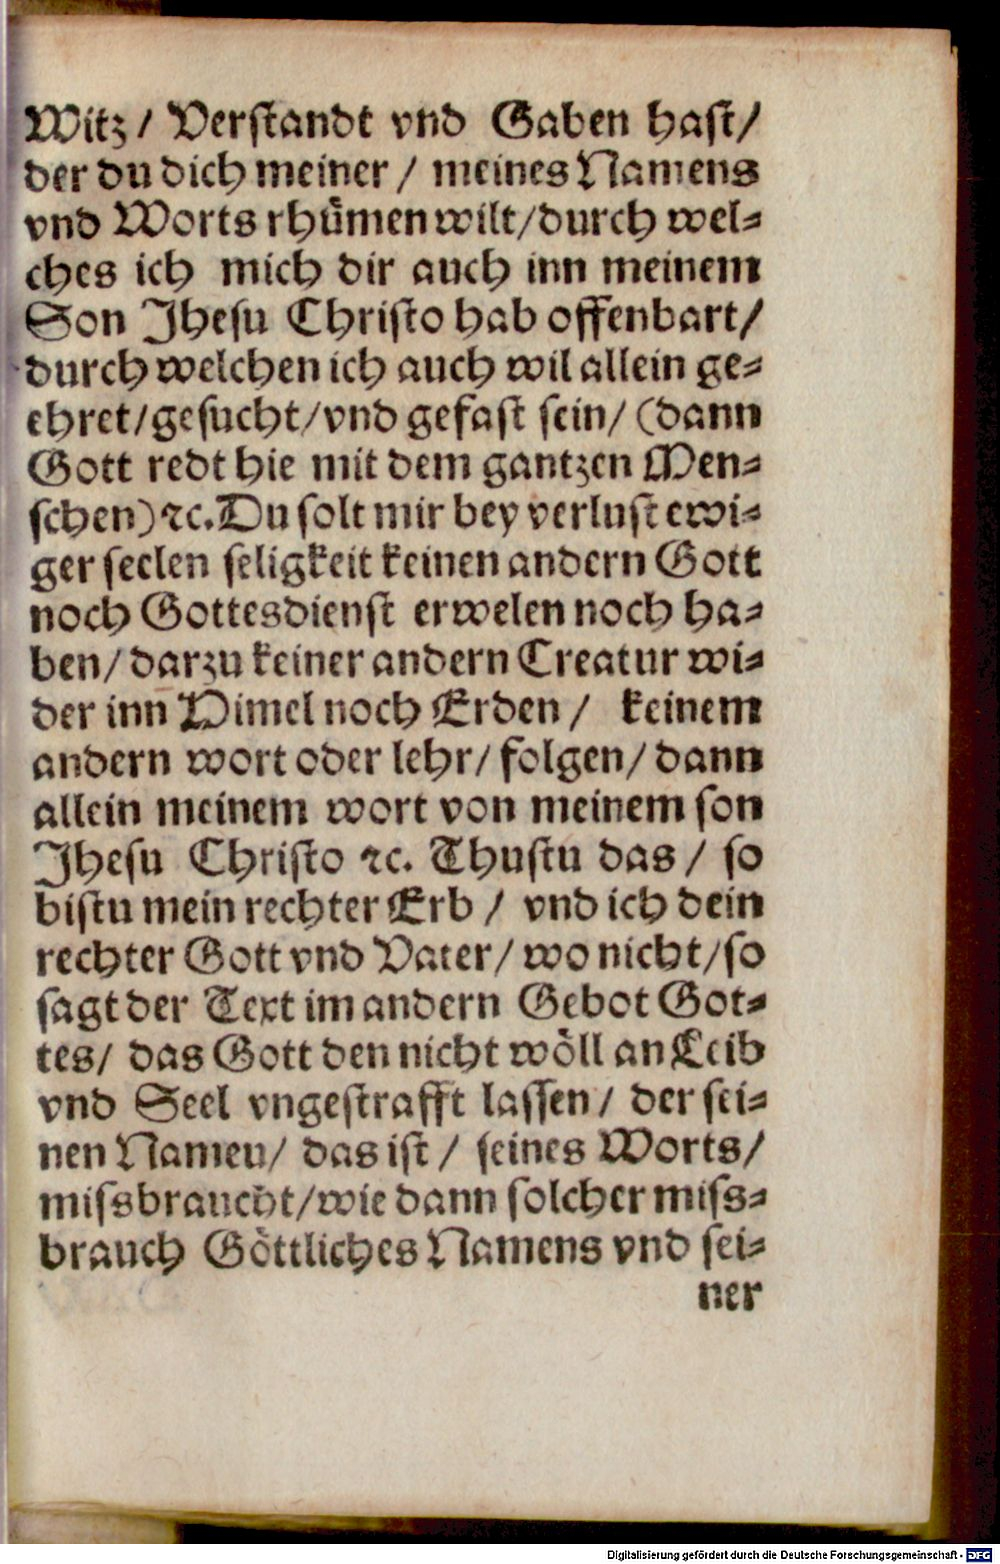 Witz / Verstandt vnd Gaben hast/
der du dich meiner / meines Namens
vnd Worts rhümen wilt/durch wel⸗
ches ich mich dir auch inn meinem
Son Jhesu Christo hab offenbart/
durch welchen ich auch wil allein ge⸗
ehret/gesucht/vnd gefast sein/ (dann
Gott redt hie mit dem gantzen Men⸗
schen) ꝛc. Du solt mir bey verlust ewi⸗
ger seelen seligkeit keinen andern Gott
noch Gottesdienst erwelen noch ha⸗
ben/ darzu keiner andern Creatur wi⸗
der inn Himel noch Erden / keinem
andern wort oder lehr/ folgen/ dann
allein meinem wort von meinem son
Jhesu Christo ꝛc. Thustu das / so
bistu mein rechter Erb / vnd ich dein
rechter Gott vnd Vater/ wo nicht/so
sagt der Text im andern Gebot Got⸗
tes/ das Gott den nicht wöll an Leib
vnd Seel vngestrafft lassen/ der sei⸗
nen Namen/ das ist / seines Worts/
missbraucht/wie dann solcher miss⸗
brauch Göttliches Namens vnd sei⸗
ner
Digitalisierung gefördert durch die Deutsche Forschungsgemeinschaft - DFG